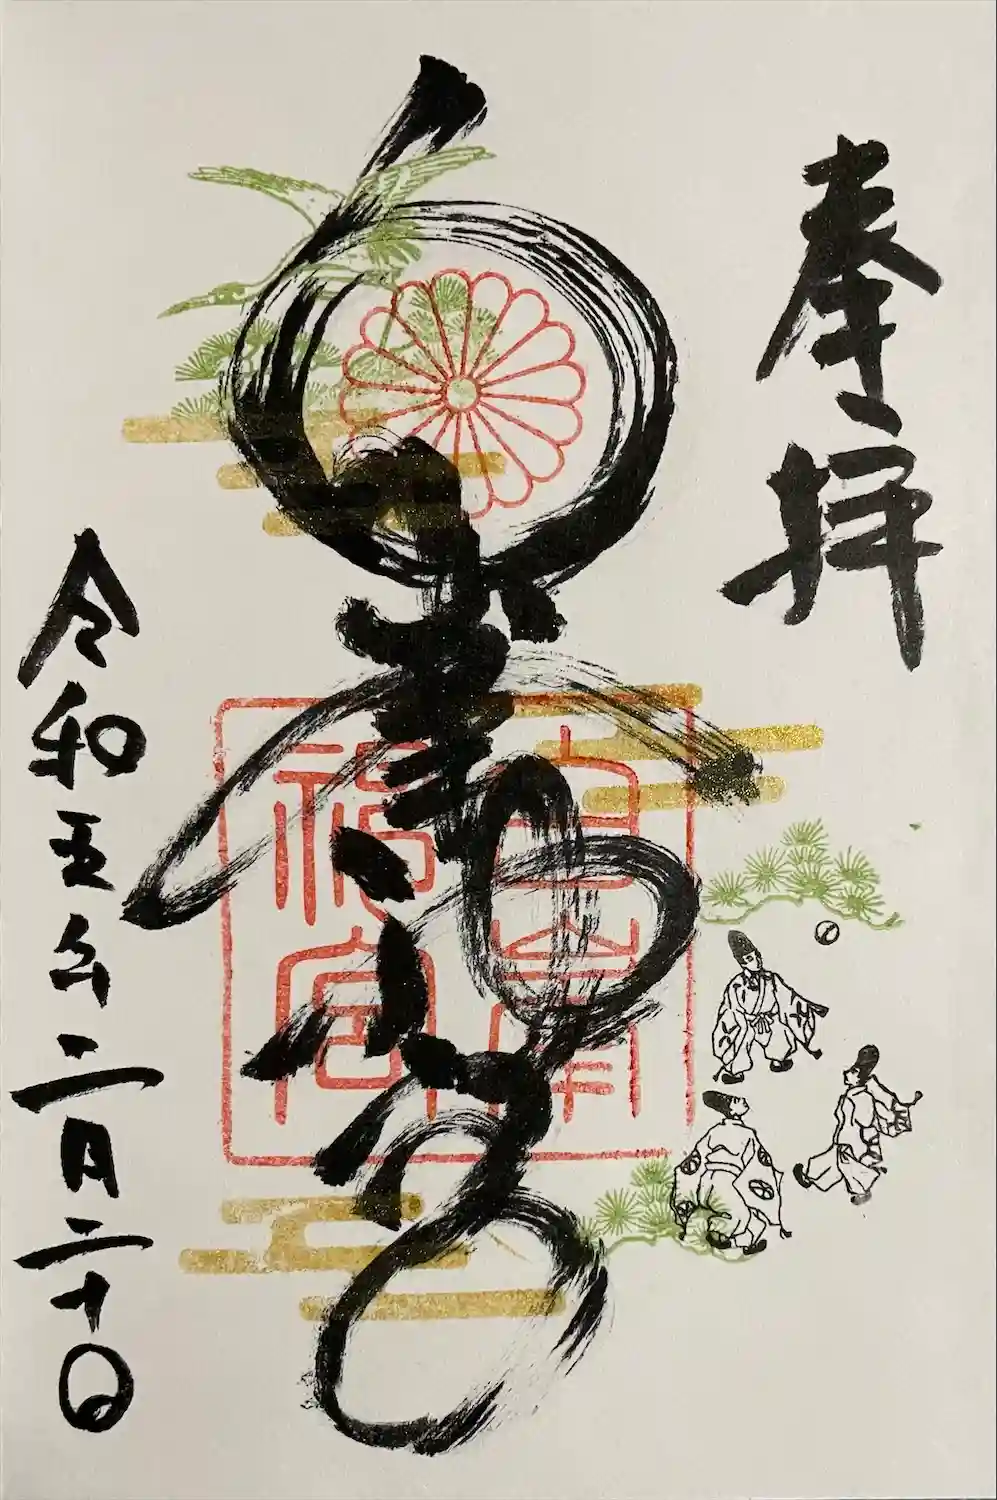 奉拝
白峯神宮
白峯
神宮
令和五年二月二十日